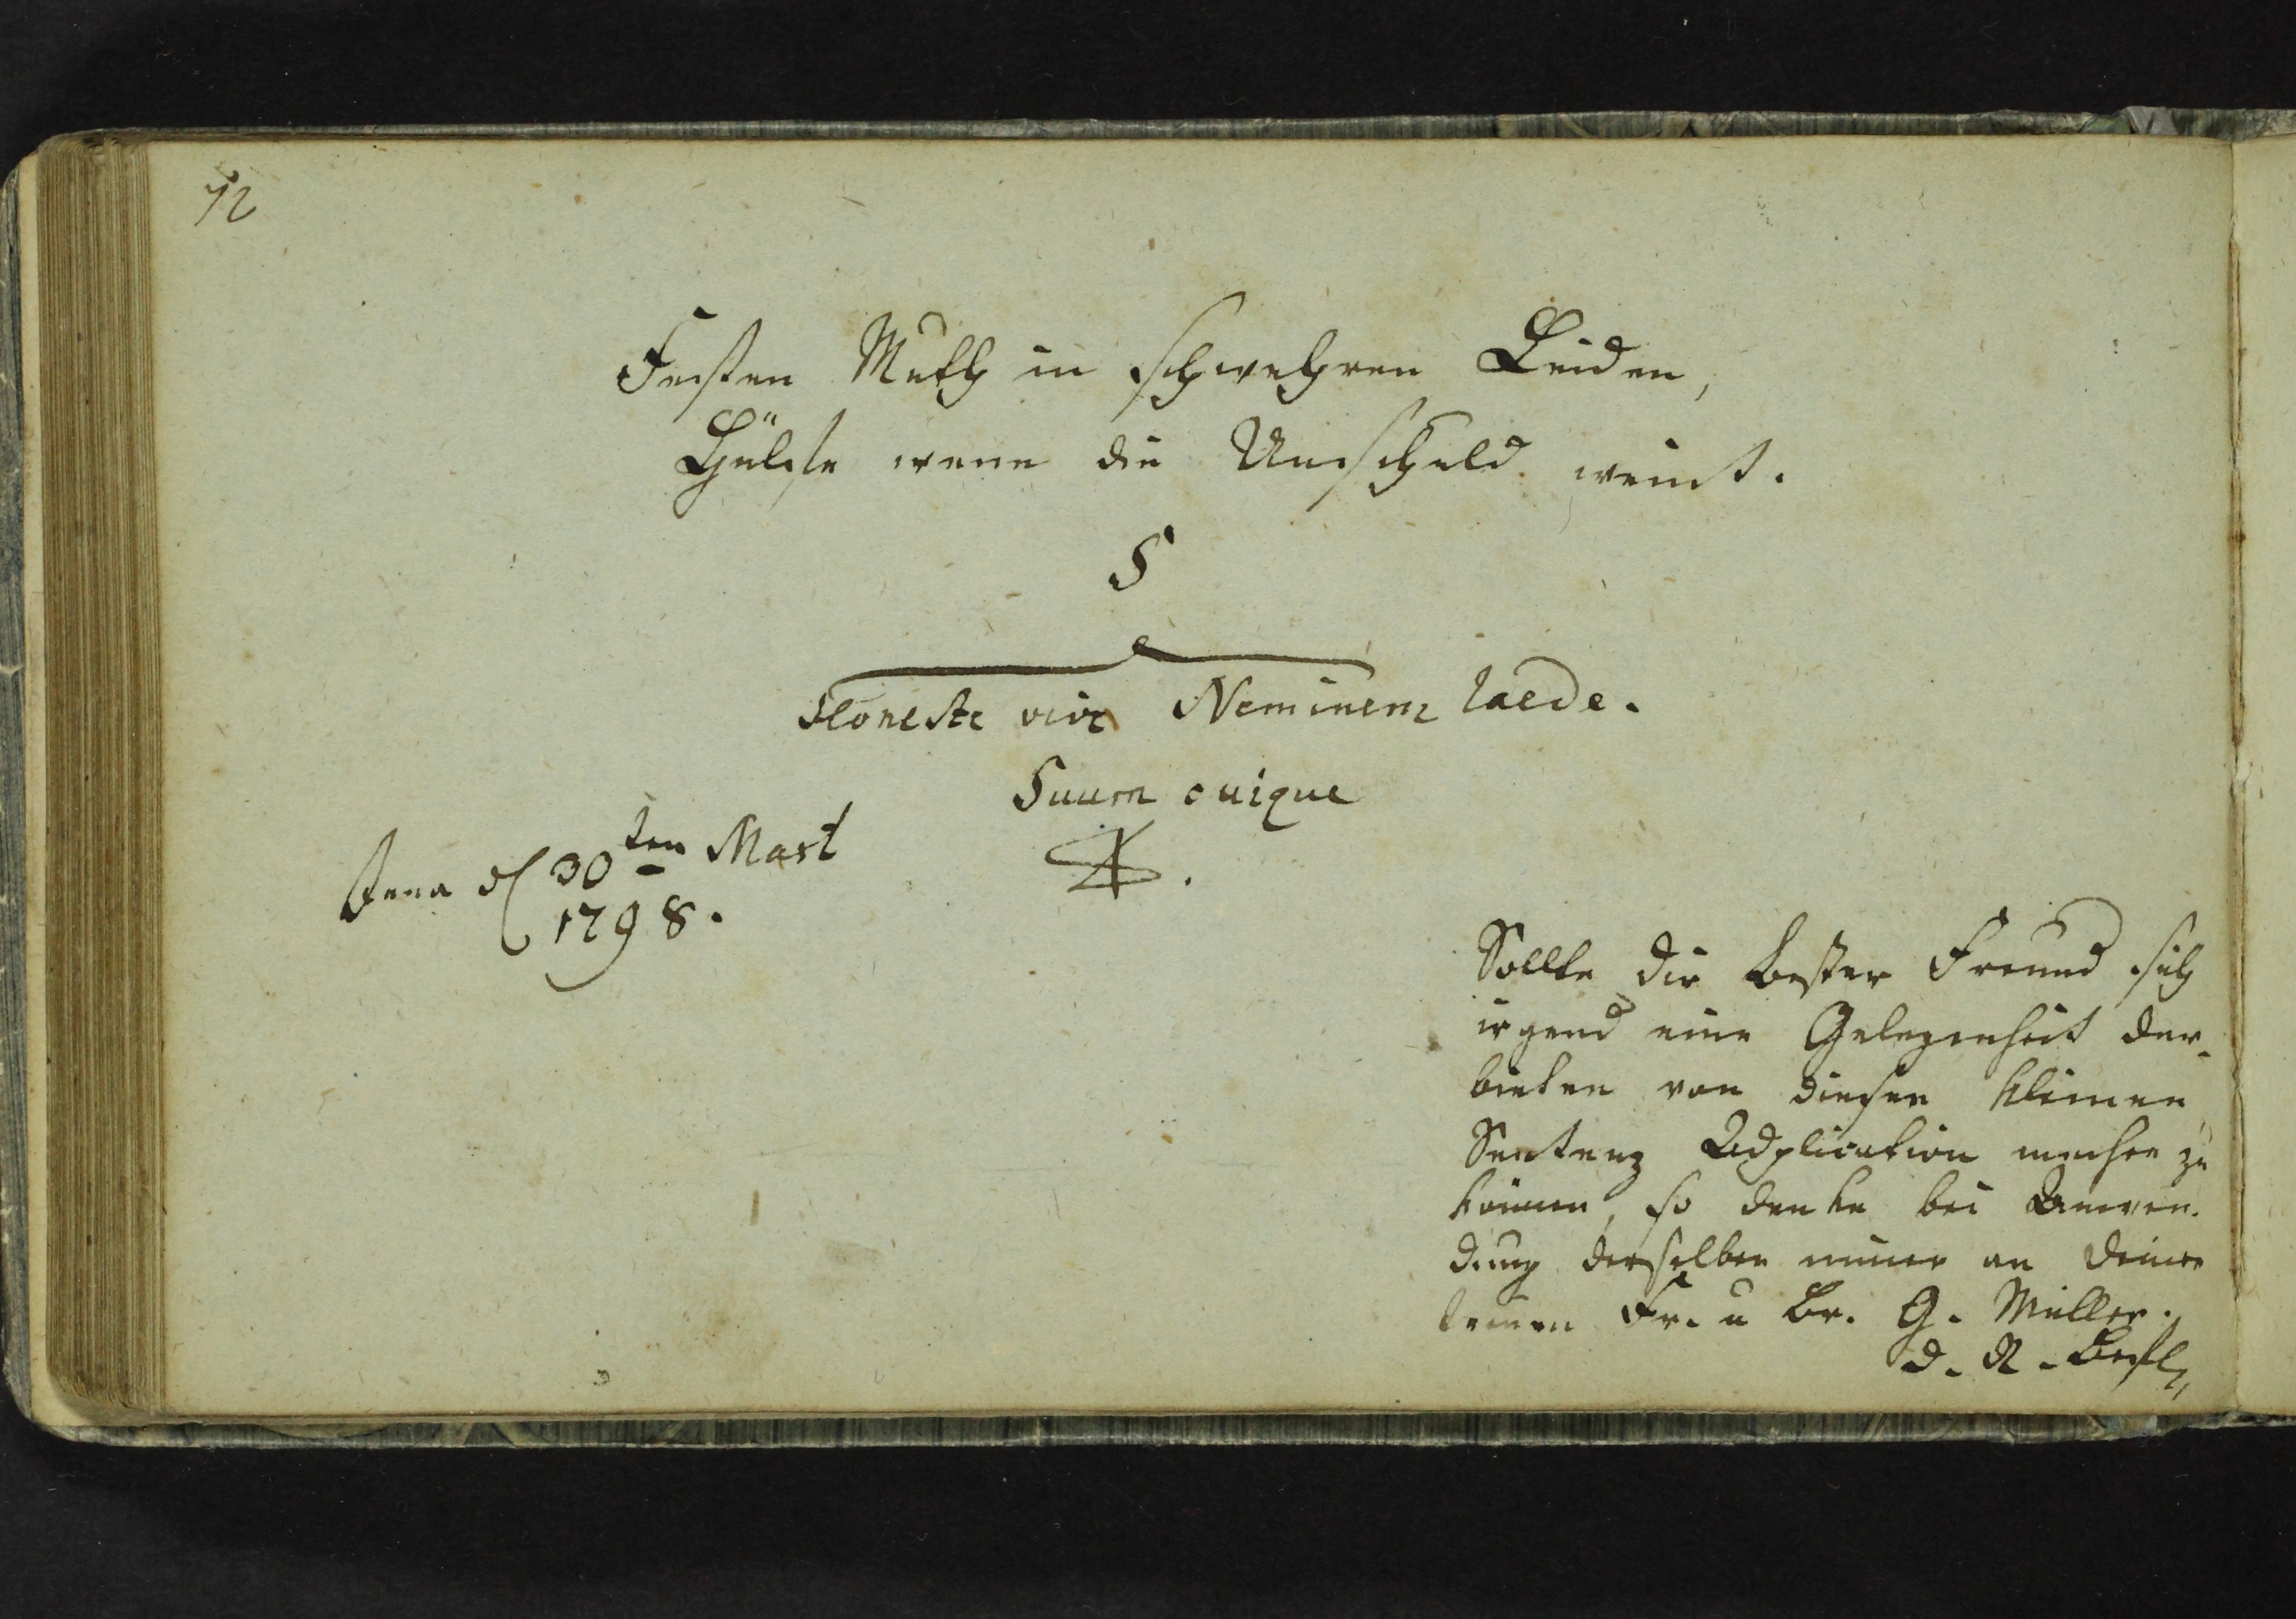 72
Festen Muth in schwehren Leiden,
Hülfe wenn die Unschuld weint.
§
Honeste vive Neminem laede.
Suum cuique
Jena d 30ten Mart
1798.
Sollte dir bester Freund sich
irgend eine Gelegenheit dar-
bieten von dieser kleinen
Sentenz Adplication machen zu
können, so denke bei Anwen-
dung derselben immer an deinen
treuen Fr. u Br. G. Müller.
d. R. Befl